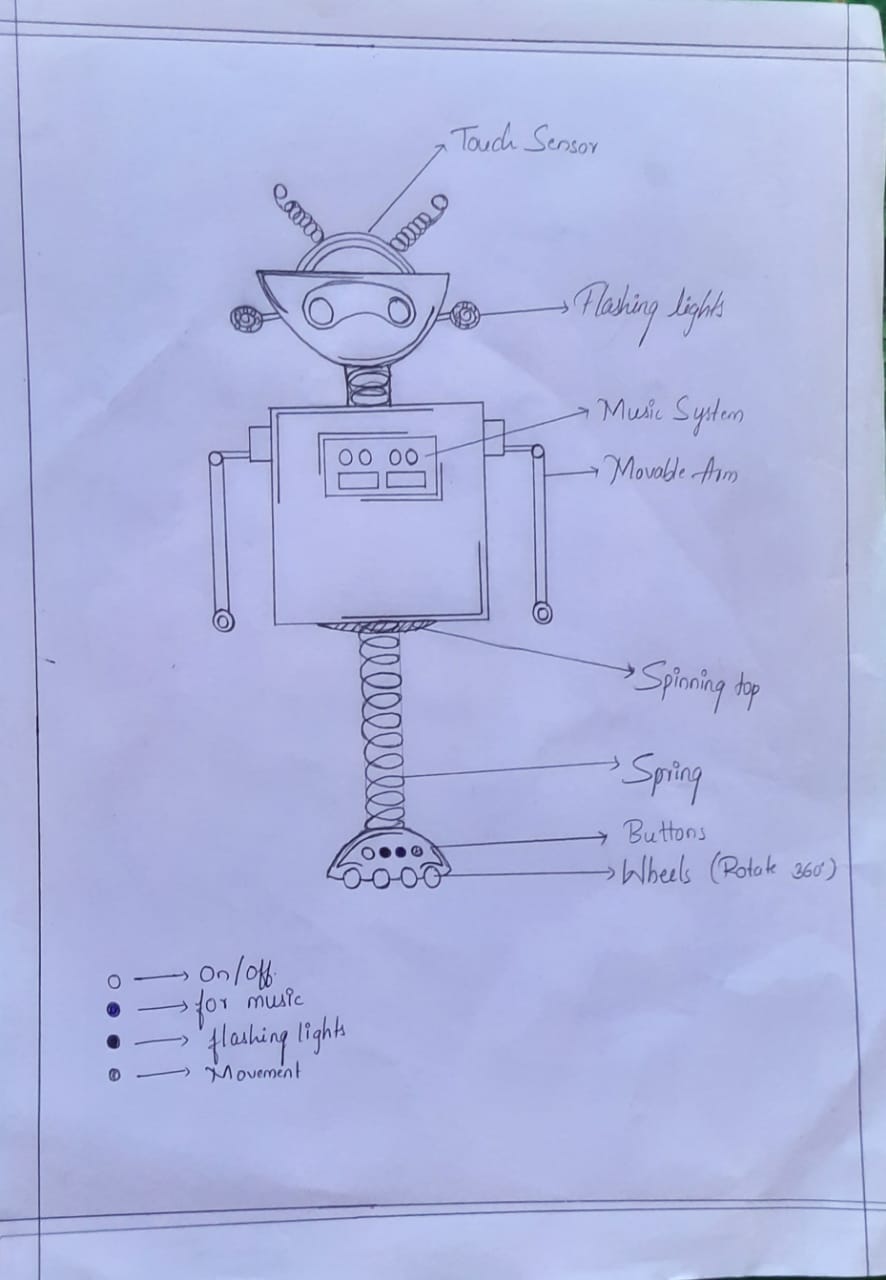 Touch Sensor
Flashing lights
Music System
Movable Arm
Spinning top
Spring
Buttons
Wheels (Rotate 360°)
On/Off
for music
flashing lights
Movement